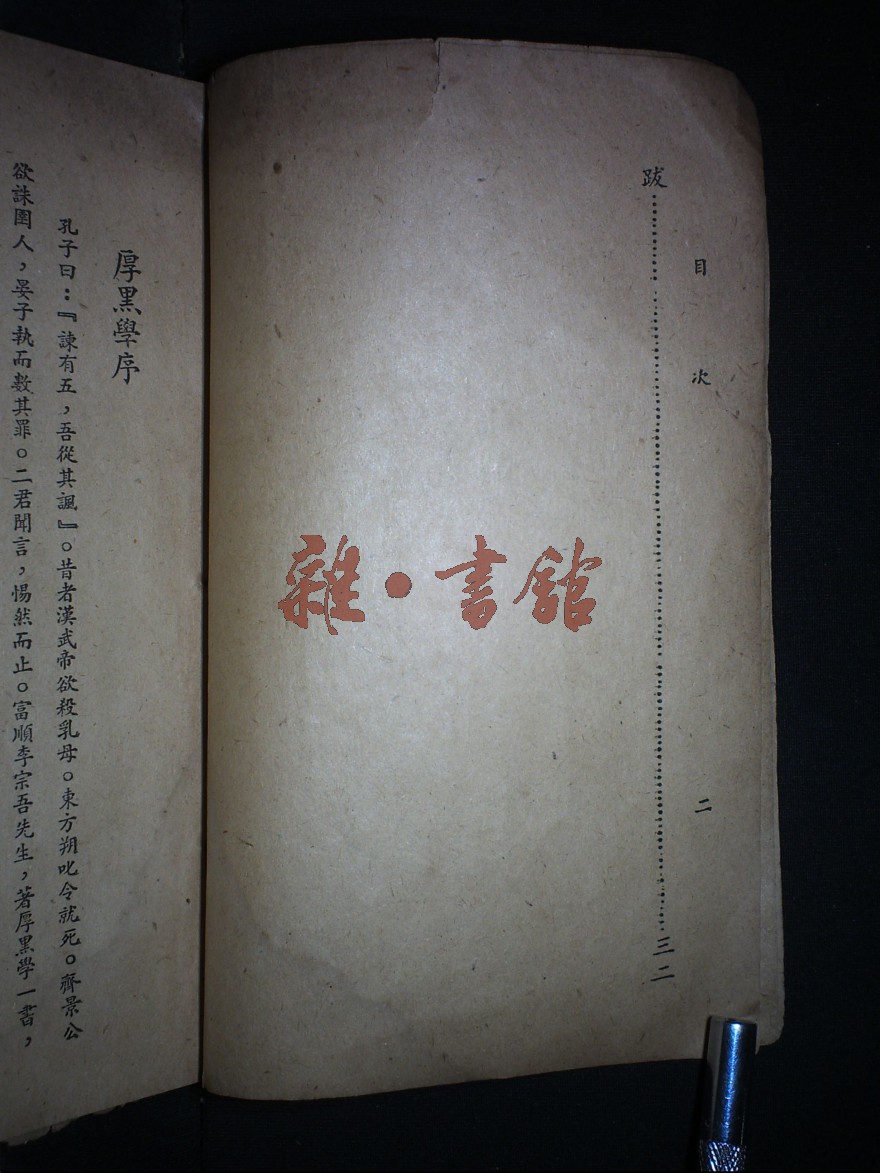 目次 二
跋……三二
厚黑學序
孔子曰：『諫有五，吾從其諷』。昔者漢武帝欲殺乳母。東方朔叱令就死。齊景公
欲誅圉人，晏子執而數其罪。二君聞言，惕然而止。富順李宗吾先生，著厚黑學一書，
雜•書館